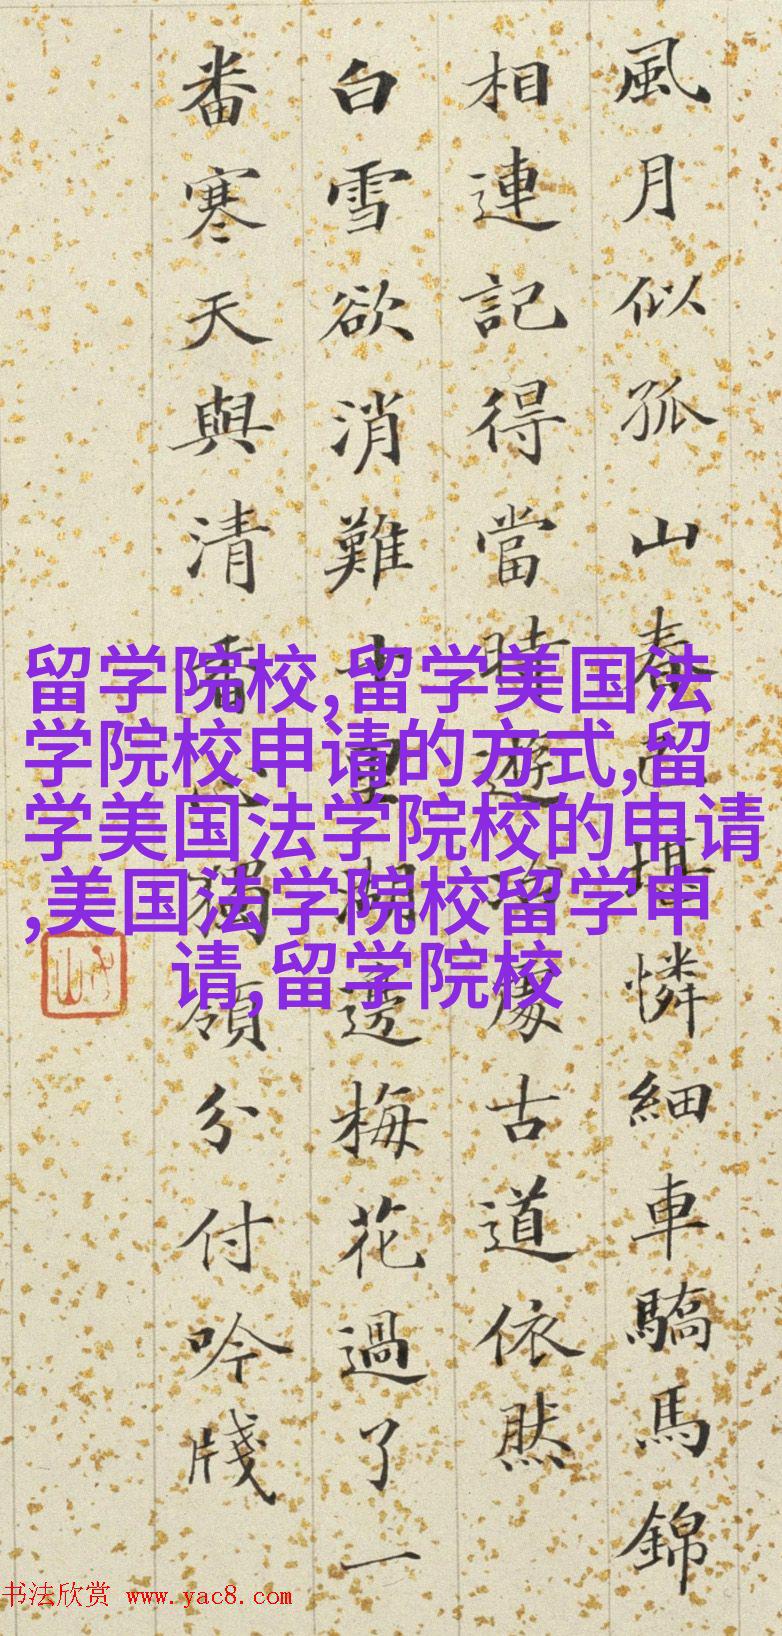 風月似孤山春堪憐細車驕馬錦
相連記得當時遊處古道依然
白雪欲消難湖邊梅花過了一
番寒天與清獨領分付吟牋
留学院校,留学美国法
学院校申请的方式,留
学美国法学院校的申请
,美国法学院校留学申
请,留学院校
书法欣赏 www.yac8.com